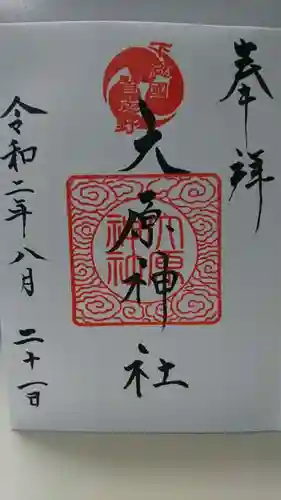 奉拝
下総國
自茂野
大原神社
大原神社
令和二年八月二十一日